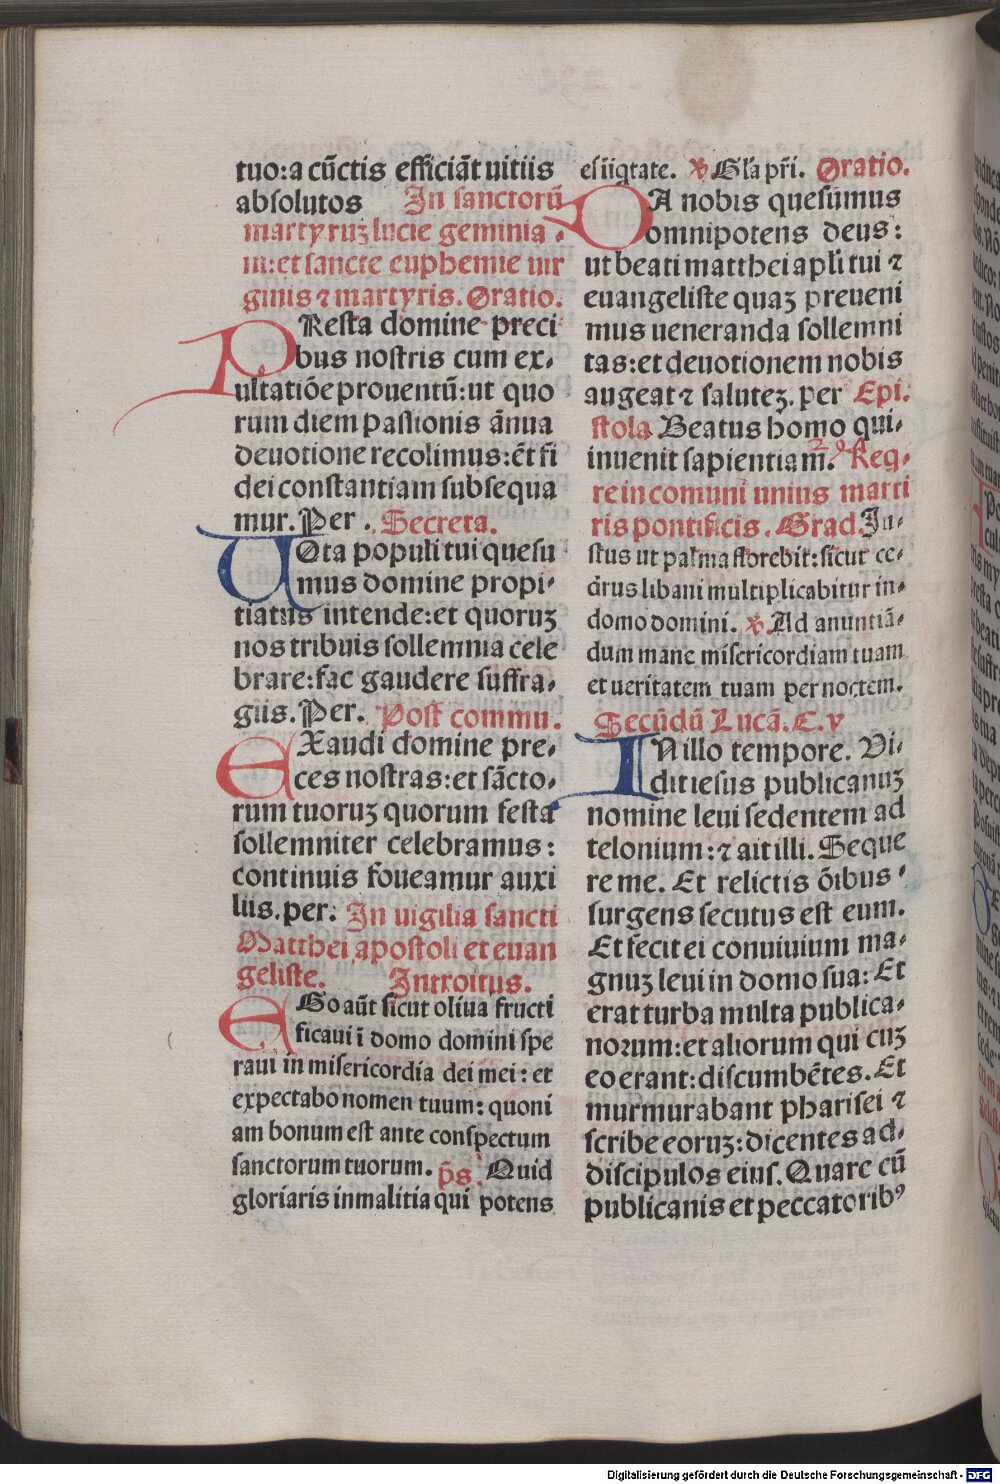 tuo: a cūctis efficiāt uitiis
absolutos In sanctorū
martyruꝫ lucie geminia-
ni: et sancte euphemie uir
ginis ⁊ martyris. Oratio.
PResta domine preci
bus nostris cum ex-
ultatiōe prouentū: ut quo
rum diem passionis ānua
deuotione recolimus: ēt fi
dei constantiam subsequa
mur. Per. Secreta.
UOta populi tui quesu
mus domine propi-
tiatus intende: et quoruꝫ
nos tribuis sollemnia cele
brare: fac gaudere suffra-
giis. Per. Post commu.
EXaudi domine pre-
ces nostras: et sācto-
rum tuoruꝫ quorum festa
sollemniter celebramus:
continuis foueamur auxi
liis. per: In uigilia sancti
Matthei apostoli et euan
geliste. Introitus.
EGo aūt sicut oliua fructi
ficaui ī domo domini spe
raui in misericordia dei mei: et
expectabo nomen tuum: quoni
am bonum est ante conspectum
sanctorum tuorum. p̄s. Quid
gloriaris in malitia qui potens
es iiqtate. ℣ Gl'a pr̄i. Oratio.
DA nobis quesumus
omnipotens deus:
ut beati matthei apl'i tui ⁊
euangeliste quaꝫ preueni
mus ueneranda sollemni
tas: et deuotionem nobis
augeat ⁊ saluteꝫ. per Epi-
stola Beatus homo qui-
inuenit sapientiam. Req-
re in comuni unius marti
ris pontificis. Grad. Iu-
stus ut palma florebit: sicut ce-
drus libani multiplicabitur in-
domo domini. ℣. Ad anuntiā-
dum mane misericordiam tuam
et ueritatem tuam per noctem.
Secūdū Lucā. C. v
IN illo tempore. Vi-
dit iesus publicanuꝫ
nomine leui sedentem ad
telonium: ⁊ ait illi. Seque
re me. Et relictis ōibus-
surgens secutus est eum.
Et fecit ei conuiuium ma-
gnuꝫ leui in domo sua: Et
erat turba multa publica-
norum: et aliorum qui cuꝫ
eo erant: discumbētes. Et
murmurabant pharisei ⁊
scribe eoruꝫ: dicentes ad-
discipulos eius. Quare cū
publicanis et peccatoribꝰ
Digitalisierung gefördert durch die Deutsche Forschungsgemeinschaft - DFG